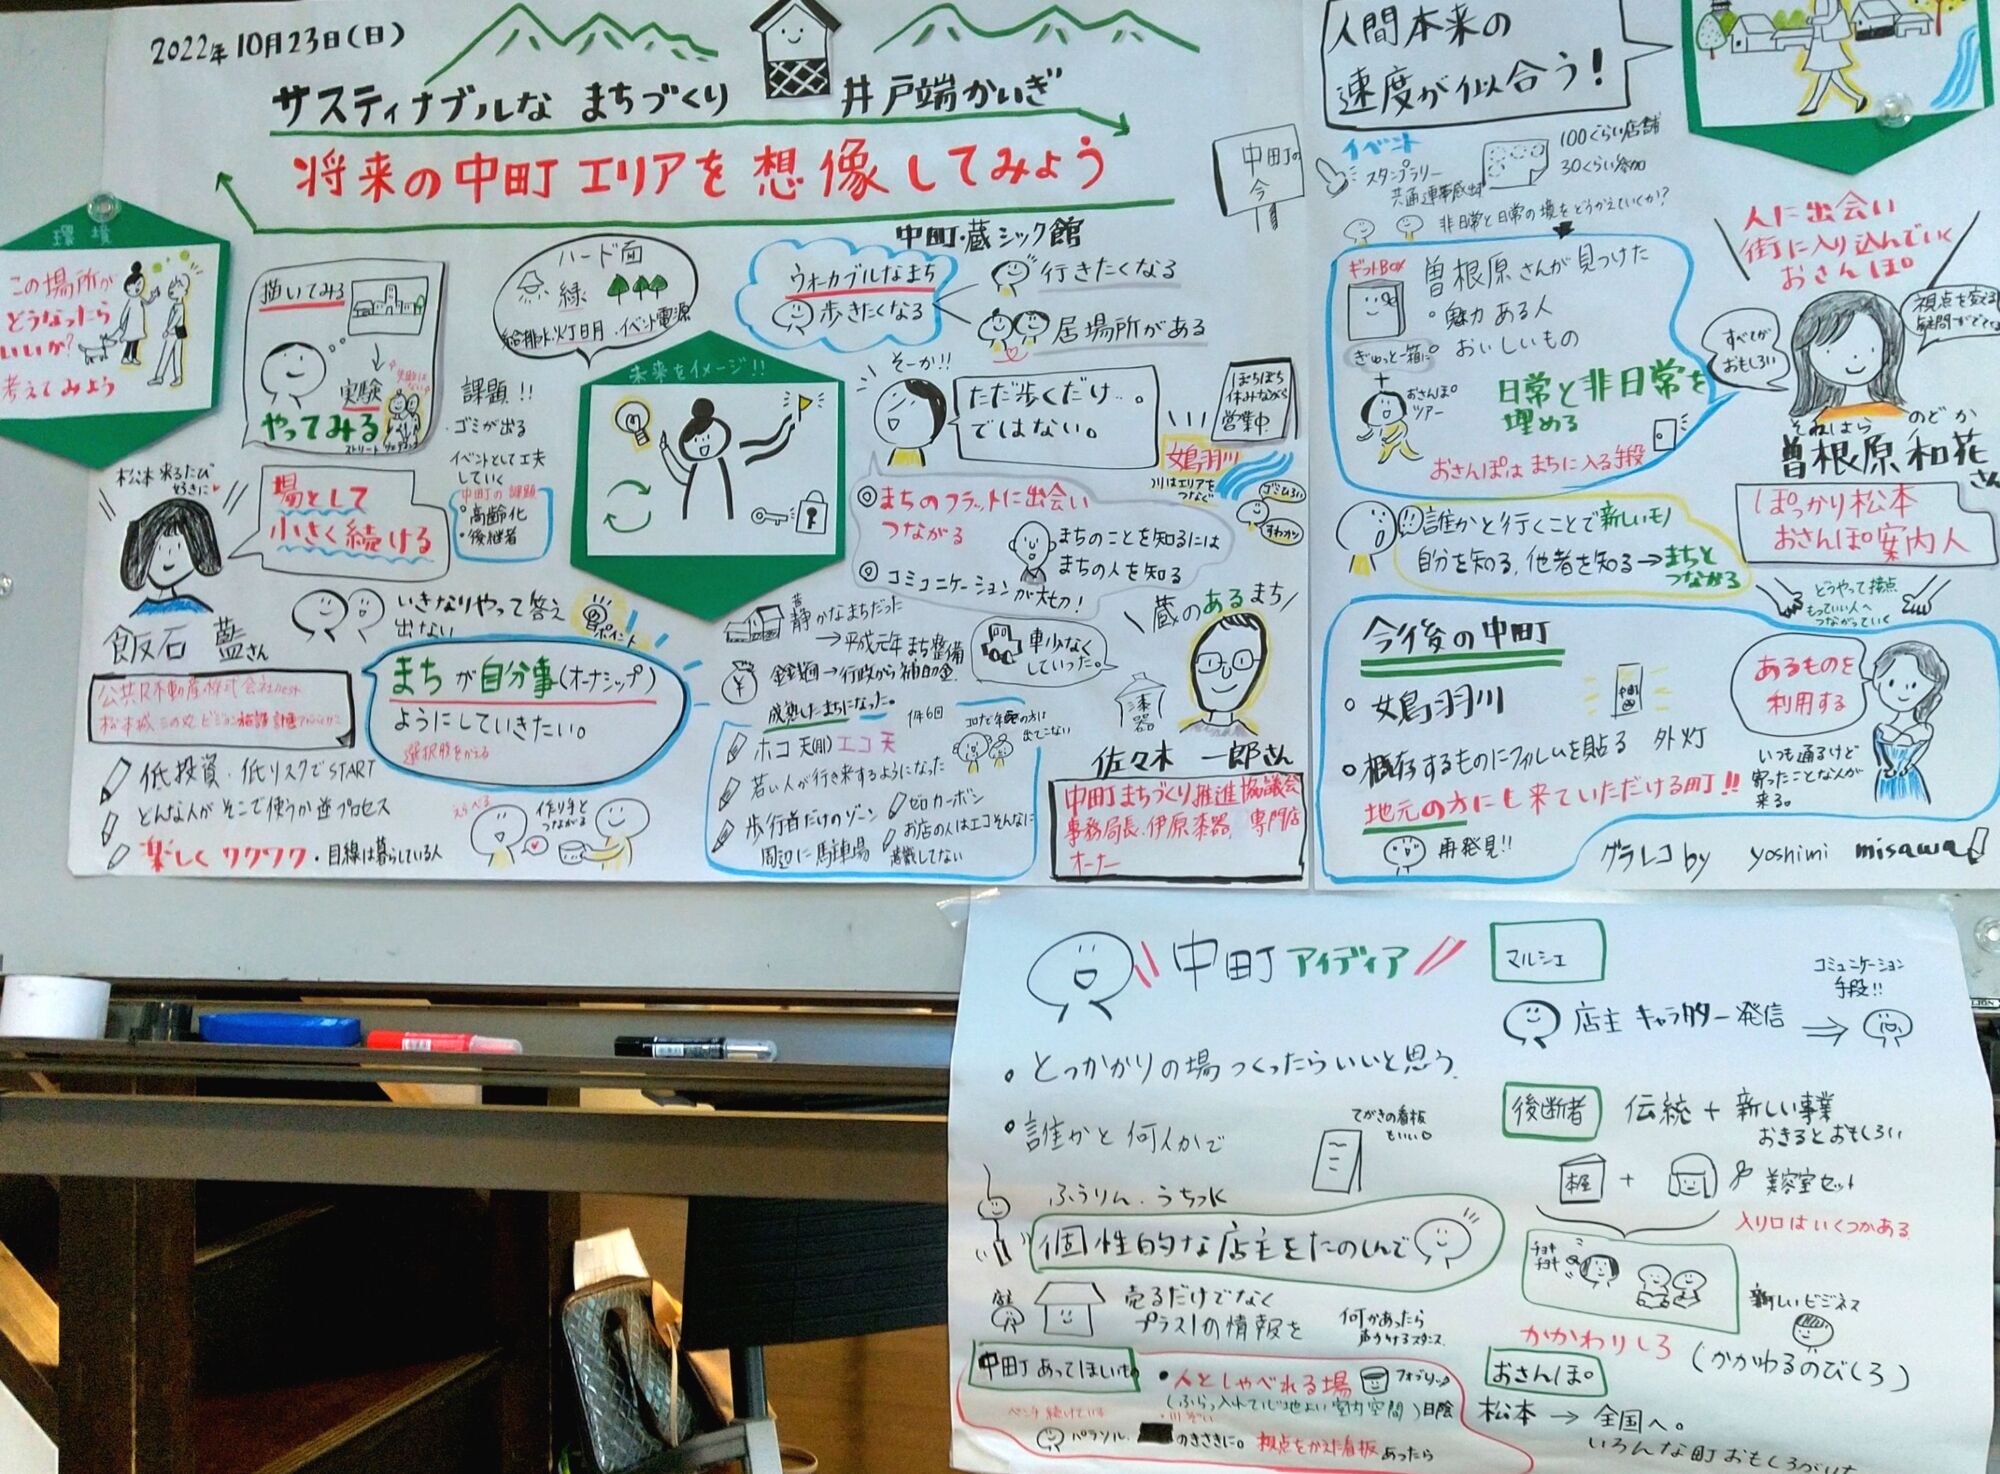 2022年10月23日(日)
サスティナブルな まちづくり 井戸端かいぎ
将来の中町エリアを想像してみよう
中町・蔵シック館
環境
この場所が
どうなったら
いいか?
考えてみよう
描いてみる
実験
やってみる
課題!!
・ゴミが出る
イベントとして工夫
していく
中町の課題
・高齢化
・後継者
ハード面
緑
給排水・灯日月・イベント電源
未来をイメージ!!
ウォーカブルなまち
歩きたくなる
行きたくなる
居場所がある
そーか!!
ただ歩くだけ…。
ではない。
ぼちぼち
休みながら
営業中
女鳥羽川
川はエリアを
つなぐ
ゴミひろい
◎まちのフラットに出会い
つながる
まちのことを知るには
まちの人を知る
◎コミュニケーションが大切!
松本来るたび
好きに
場として
小さく続ける
飯石 藍さん
いきなりやって答え
出ない
ポイント
まちが自分事(オーナシップ)
ようにしていきたい。
選択肢をかえる
低投資・低リスクでSTART
どんな人がそこで使うか逆プロセス
楽しくワクワク・目線は暮らしている人
えらべる
作り手と
つながる
静かなまちだった
→平成元年まち整備
→行政から補助金
成熟したまちになった。
車少なく
していった。
蔵のあるまち
漆器
佐々木 一郎さん
中町まちづくり推進協議会
事務局長、伊原漆器 専門店
オーナー
1年6回
ホコ天(月) エコ天
若い人が行き来するようになった
歩行者だけのゾーン
周辺に駐車場
ゼロカーボン
お店の人はエコそんなに
意識してない
中町の
今
人間本来の
速度が似合う!
イベント
スタンプラリー
共通連帯感出す
100ぐらい店舗
30くらい参加
非日常と日常の境をどうかえていくか?
ギフトBOX
曽根原さんが見つけた
・魅力ある人
おいしいもの
ぎゅっと一箱に。
＋
おさんぽ
ツアー
日常と非日常を
埋める
おさんぽは まちに入る手段
人に出会い
街に入り込んでいく
おさんぽ。
すべてが
おもしろい
視点を変える
疑問がでてくる
そねはら のどか
曽根原 和花さん
ぽっかり松本
おさんぽ案内人
誰かと行くことで新しいモノ
自分を知る、他者を知る→まちと
つながる
どうやって接点
もっていい人へ
つながっていく
今後の中町
○ 女鳥羽川
○ 概存するものにフィルムを貼る 外灯
地元の方にも来ていただける町!!
再発見!!
あるものを
利用する
いつも通るけど
寄ったことな人が
来る。
グラレコby yoshimi misawa
中町アイディア
○ とっかかりの場つくったらいいと思う
○ 誰かと何人かで
てがきの看板
もいい。
ふうりん、うちっ水
個性的な店主をたのしんで
店主
売るだけでなく
プラス1の情報を
何かあったら
声かけるスタンス
中町あってほしいもの
・人としゃべれる場
(ふらっ入れて心地よい室内空間)日陰
ベンチ続けている
パラソル
のきさきに。視点をかえた看板あったら
マルシェ
店主 キャラクター発信
⇒
コミュニケーション
手段!!
後断者
伝統 + 新しい事業
おきるとおもしろい
本屋
+
美容室セット
入り口はいくつかある
チョキ
チョキ
新しいビジネス
かかわりしろ
(かかわるのびしろ)
おさんぽ。
松本→全国へ。
いろんな町おもしろがいた